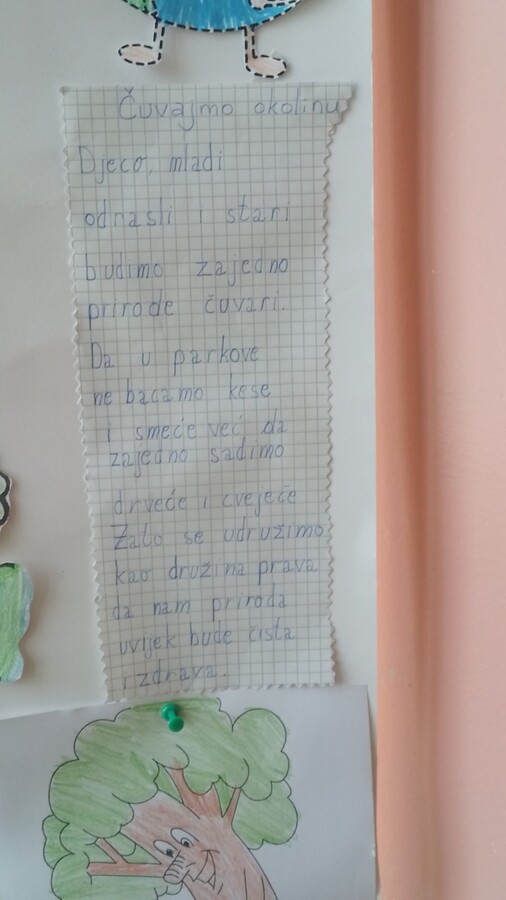 Čuvajmo okolinu
Djeco, mladi
odrasli i stari
budimo zajedno
prirode čuvari.
Da u parkove
ne bacamo kese
i smeće već da
zajedno sadimo
drveće i cvejeće
Zato se udružimo
kao družina prava
da nam priroda
uvijek bude čista
i zdrava.